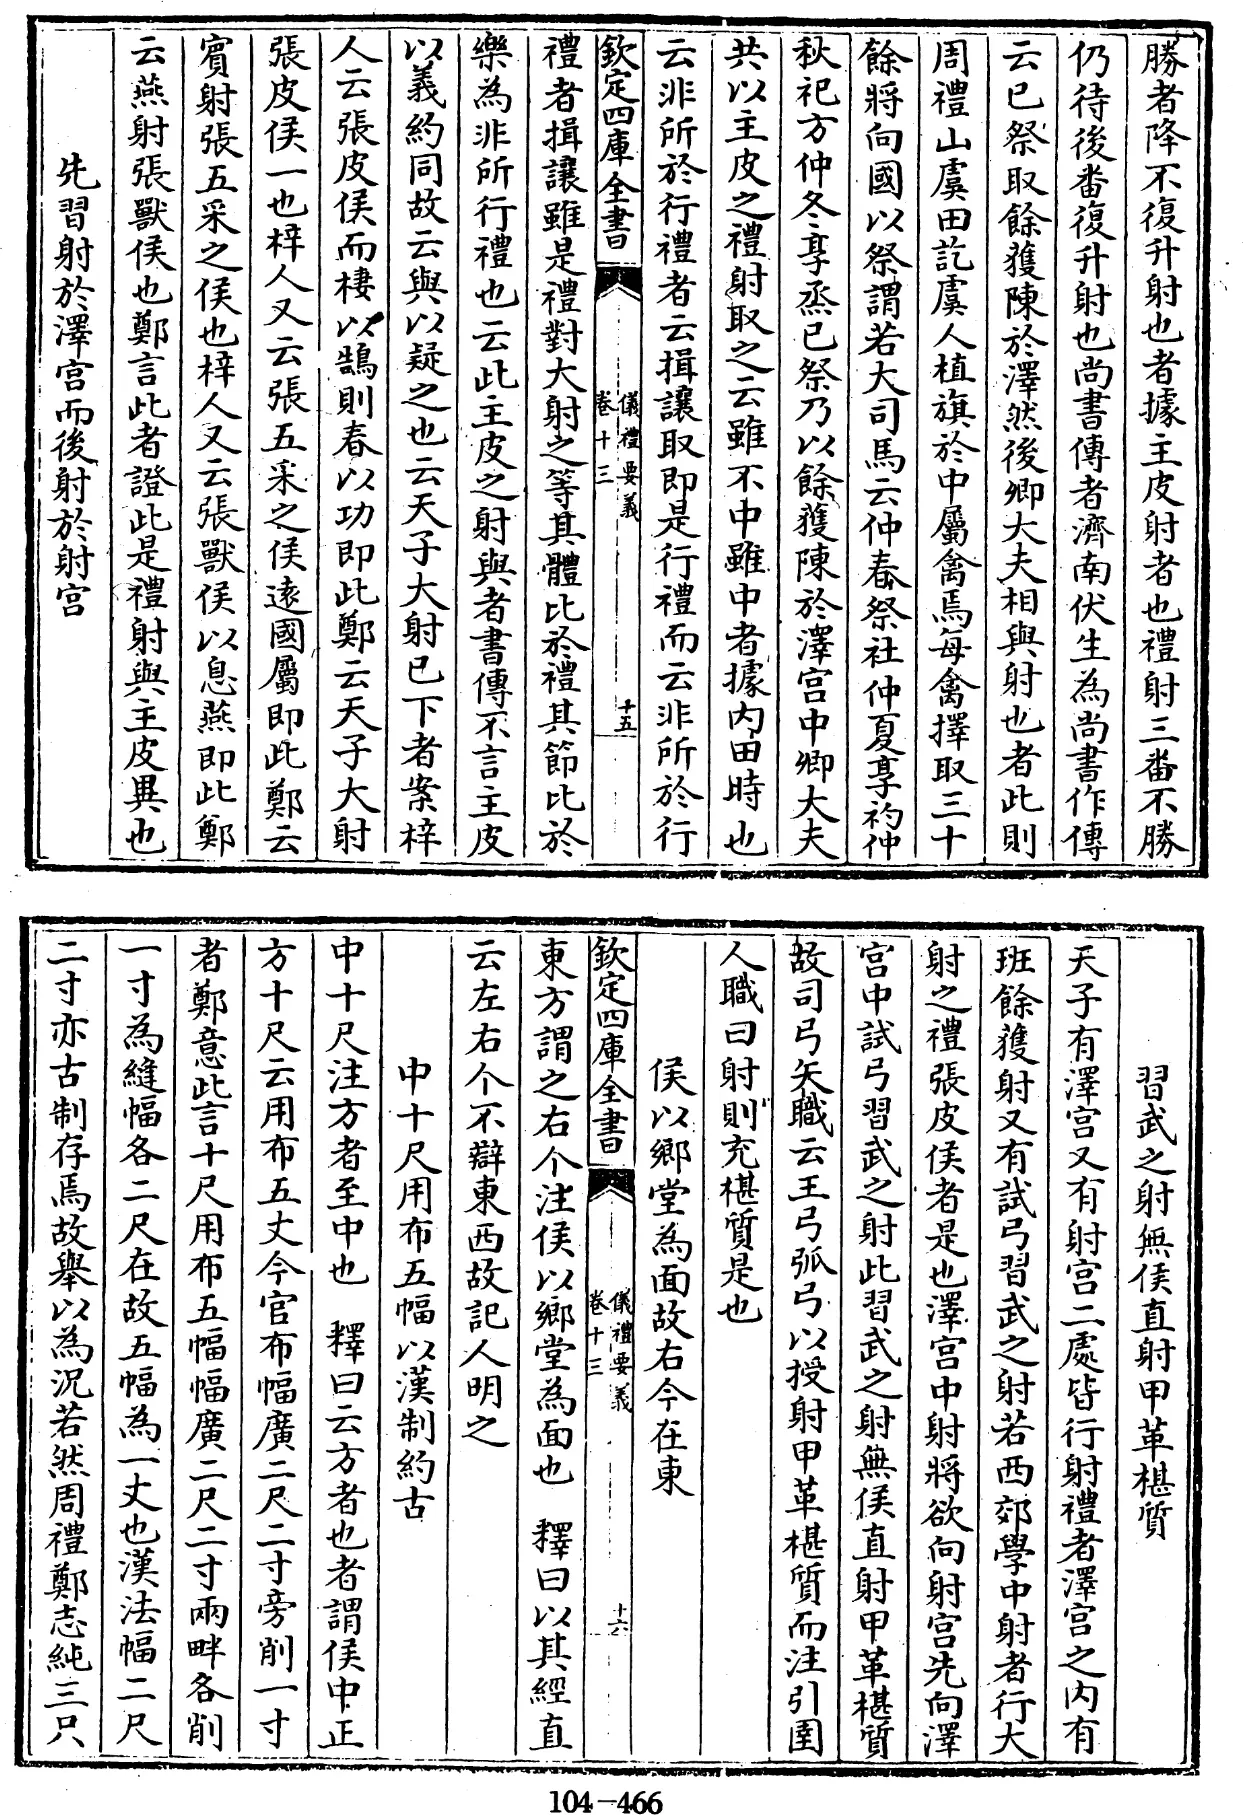 勝者降不復升射也者據主皮射者也禮射三番不勝
仍待後番復升射也尚書傳者濟南伏生為尚書作傳
云已祭取餘獲陳於澤然後卿大夫相與射也者此則
周禮山虞田訖虞人植旗於中屬禽焉每禽擇取三十
餘將向國以祭謂若大司馬云仲春祭社仲夏享礿仲
秋祀方仲冬享烝已祭乃以餘獲陳於澤宫中卿大夫
共以主皮之禮射取之云雖不中雖中者據内田時也
云非所於行禮者云揖讓取即是行禮而云非所於行
欽定四庫全書
儀禮要義
卷十三
十五
禮者揖讓雖是禮對大射之等其體比於禮其節比於
樂為非所行禮也云此主皮之射與者書傳不言主皮
以義約同故云與以疑之也云天子大射已下者案梓
人云張皮侯而棲以鵠則春以功即此鄭云天子大射
張皮侯一也梓人又云張五采之侯遠國屬即此鄭云
賓射張五采之侯也梓人又云張獸侯以息燕即此鄭
云燕射張獸侯也鄭言此者證此是禮射與主皮異也
先習射於澤宫而後射於射宫
習武之射無侯直射甲革椹質
天子有澤宫又有射宫二處皆行射禮者澤宫之内有
班餘獲射又有試弓習武之射若西郊學中射者行大
射之禮張皮侯者是也澤宫中射將欲向射宫先向澤
宫中試弓習武之射此習武之射無侯直射甲革椹質
故司弓矢職云王弓弧弓以授射甲革椹質而注引圉
人職曰射則充椹質是也
侯以鄉堂為面故右今在東
欽定四庫全書
儀禮要義
卷十三
十六
東方謂之右个注侯以鄉堂為面也 釋曰以其經直
云左右个不辯東西故記人明之
中十尺用布五幅以漢制約古
中十尺注方者至中也 釋曰云方者也者謂侯中正
方十尺云用布五丈今官布幅廣二尺二寸旁削一寸
者鄭意此言十尺用布五幅幅廣二尺二寸兩畔各削
一寸為縫幅各二尺在故五幅為一丈也漢法幅二尺
二寸亦古制存焉故舉以為況若然周禮鄭志純三只
104-466